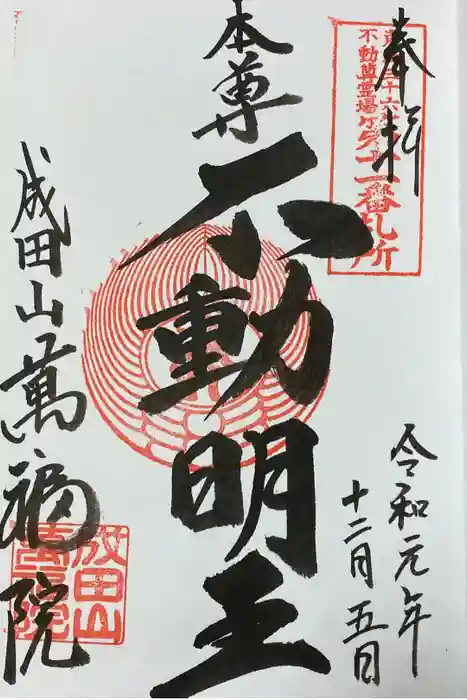 奉拝
不動尊霊場
番札所
本尊
不動明王
令和元年
十二月五日
成田山萬福院
成田山
萬福院